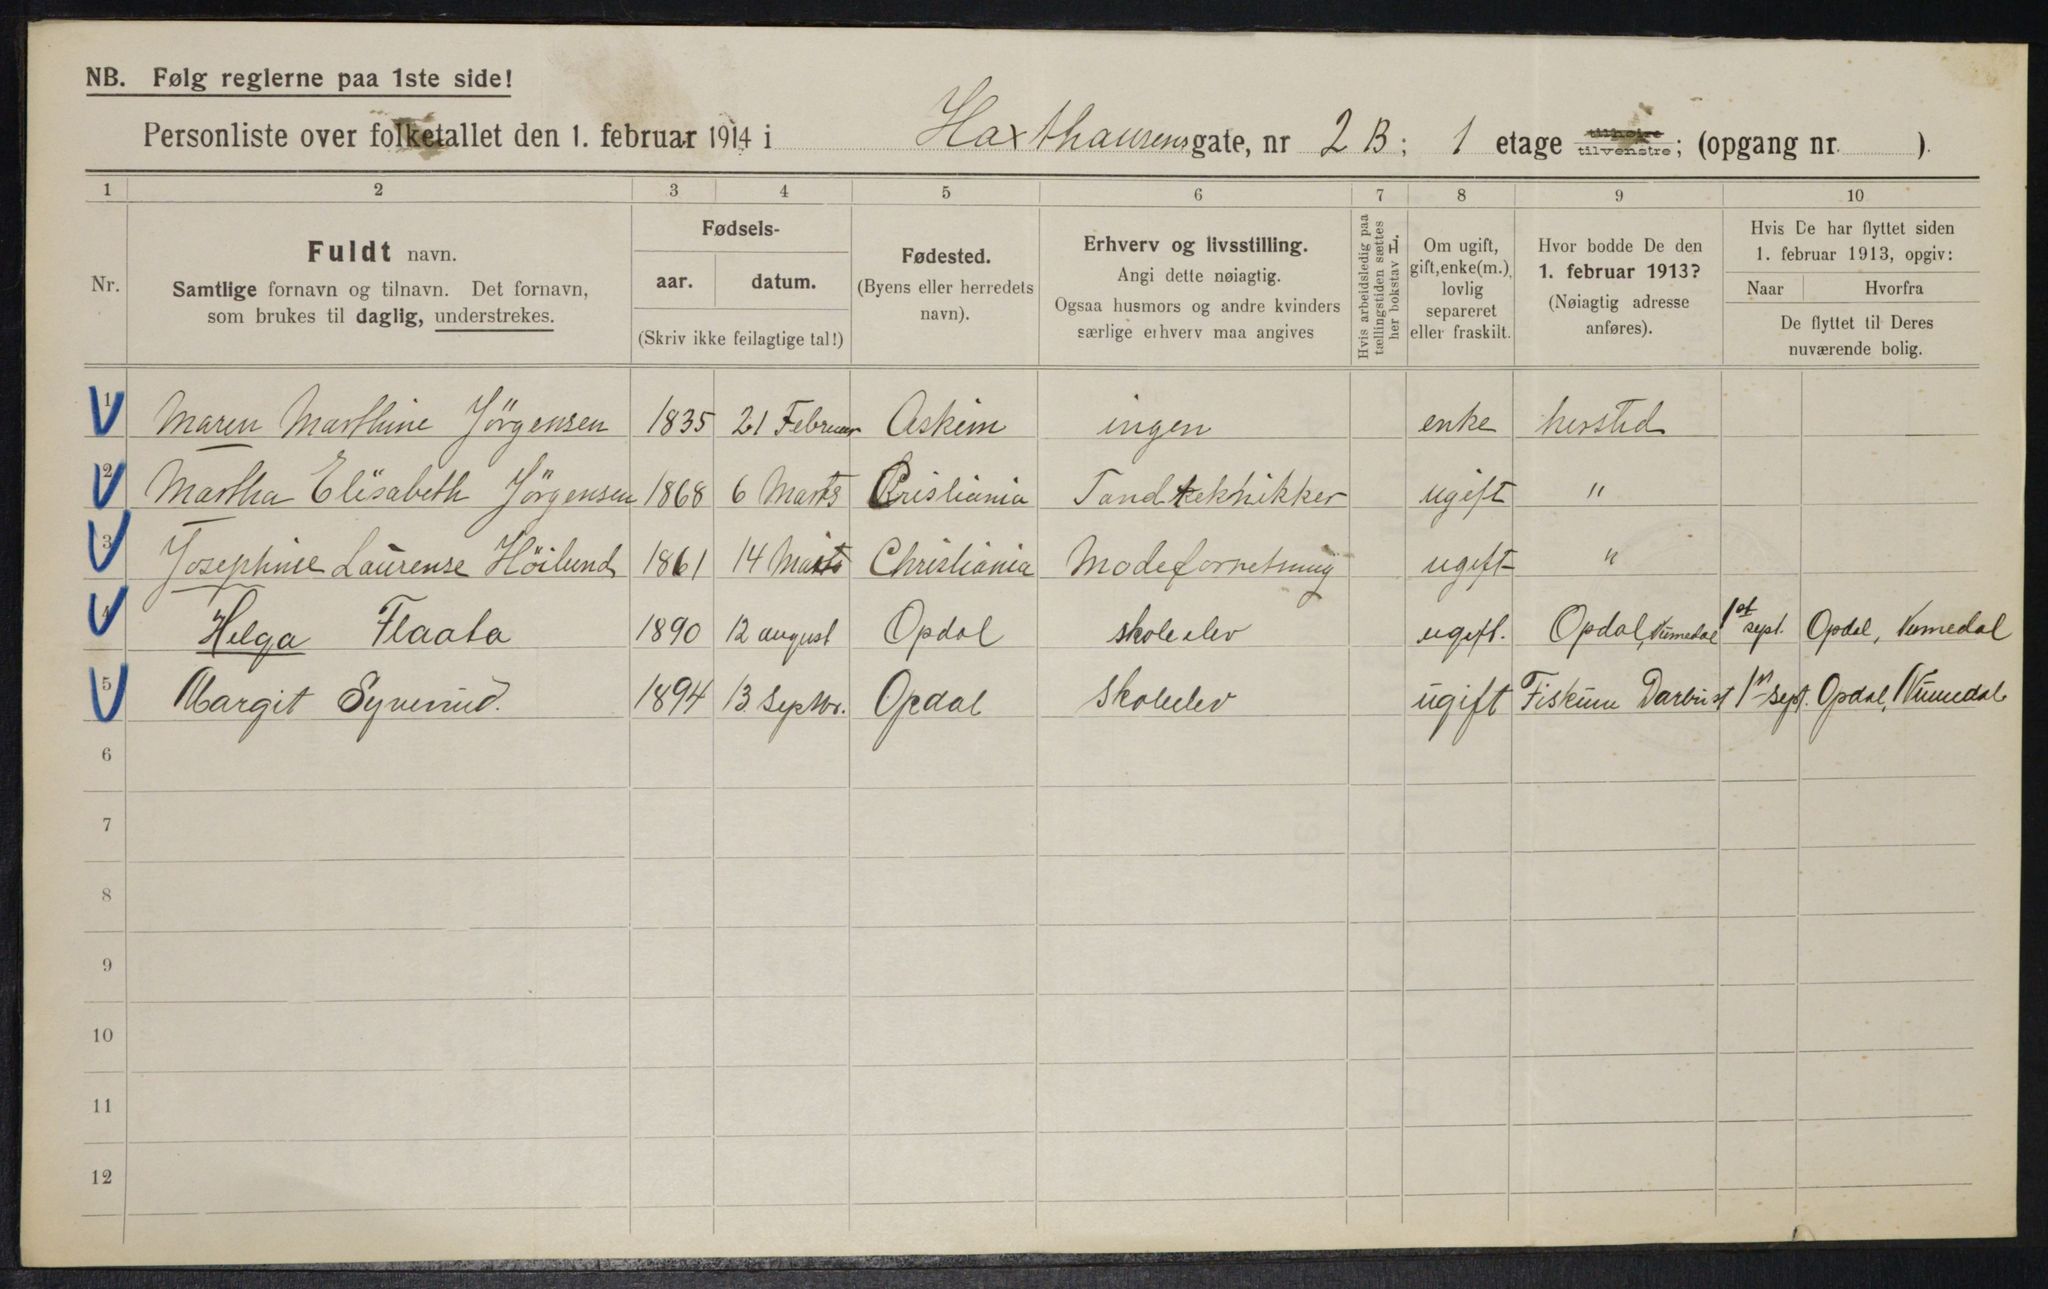 NB. Følg reglerne paa 1ste side!
Personliste over folketallet den 1. februar 1914 i Haxthausens gate, nr 2B; 1 etage tilhøire tilvenstre; (opgang nr. ).
1 2 3 4 5 6 7 8 9 10
Nr.
Fuldt navn.
Samtlige fornavn og tilnavn. Det fornavn,
som brukes til daglig, understrekes.
Fødsels-
aar. datum.
(Skriv ikke feilagtige tal!)
Fødested.
(Byens eller herredets
navn).
Erhverv og livsstilling.
Angi dette nøiagtig.
Ogsaa husmors og andre kvinders
særlige erhverv maa angives
Hvis arbeidsledig paa
tællingstiden sættes
her bokstav L.
Om ugift,
gift, enke(m.),
lovlig
separeret
eller fraskilt.
Hvor bodde De den
1. februar 1913?
(Nøiagtig adresse
anføres).
Hvis De har flyttet siden
1. februar 1913, opgiv:
Naar Hvorfra
De flyttet til Deres
nuværende bolig.
1 Maren Marthine Jörgensen 1835 21 Februar Askim ingen enke hersted
2 Martha Elisabeth Jörgensen 1868 6 Marts Kristiania Tandtekhikker ugift "
3 Josephine Laurense Höilund 1861 14 Marts Christiania Modeforretning ugift "
4 Helga Flaata 1890 12 august Opdal skoleelev ugift. Opdal, Numedal 1st sept. Opdal, Numedal
5 Margit Synerud. 1894 13 Septbr. Opdal Skoleelev ugift Fiskum 1st sept. Opdal, Numedal
6
7
8
9
10
11
12